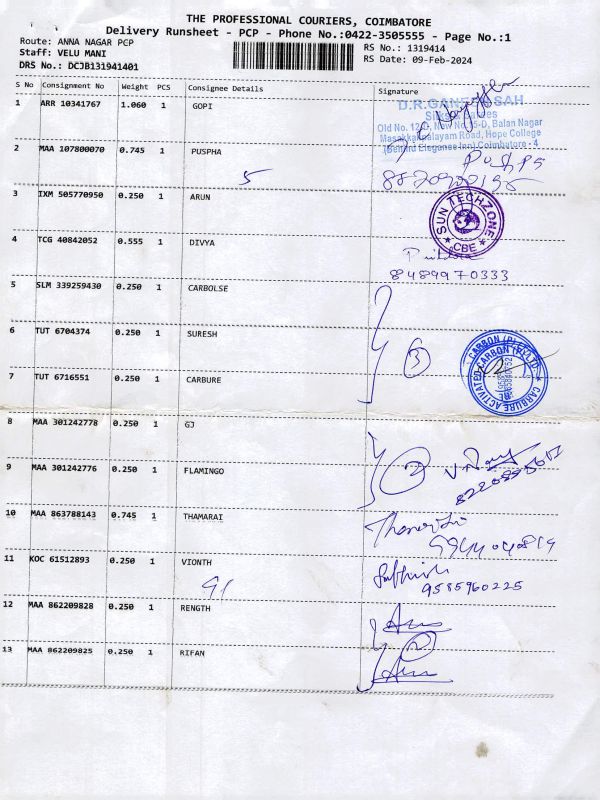 THE PROFESSIONAL COURIERS, COIMBATORE
Delivery Runsheet - PCP - Phone No.:0422-3505555 - Page No.:1
Route: ANNA NAGAR PCP
Staff: VELU MANI
DRS No.: DCJB131941401
RS No.: 1319414
RS Date: 09-Feb-2024
S No Consignment No Weight PCS Consignee Details Signature
1 ARR 10341767 1.060 1 GOPI
D.R. SAH
Old No. Balan Nagar
Masakkalipalayam Road, Hope College
Coimbatore - 4
2 MAA 107800070 0.745 1 PUSPHA
Pushpa
5
3 IXM 505770950 0.250 1 ARUN
SUN TECHZONE
CBE
4 TCG 40842052 0.555 1 DIVYA
8489970333
5 SLM 339259430 0.250 1 CARBOLSE
6 TUT 6704374 0.250 1 SURESH
3
7 TUT 6716551 0.250 1 CARBURE
CARBURE ACTIVATED CARBON
8 MAA 301242778 0.250 1 GJ
2
9 MAA 301242776 0.250 1 FLAMINGO
10 MAA 863788143 0.745 1 THAMARAI
9944040819
11 KOC 61512893 0.250 1 VIONTH
9585960225
91
12 MAA 862209828 0.250 1 RENGTH
13 MAA 862209825 0.250 1 RIFAN